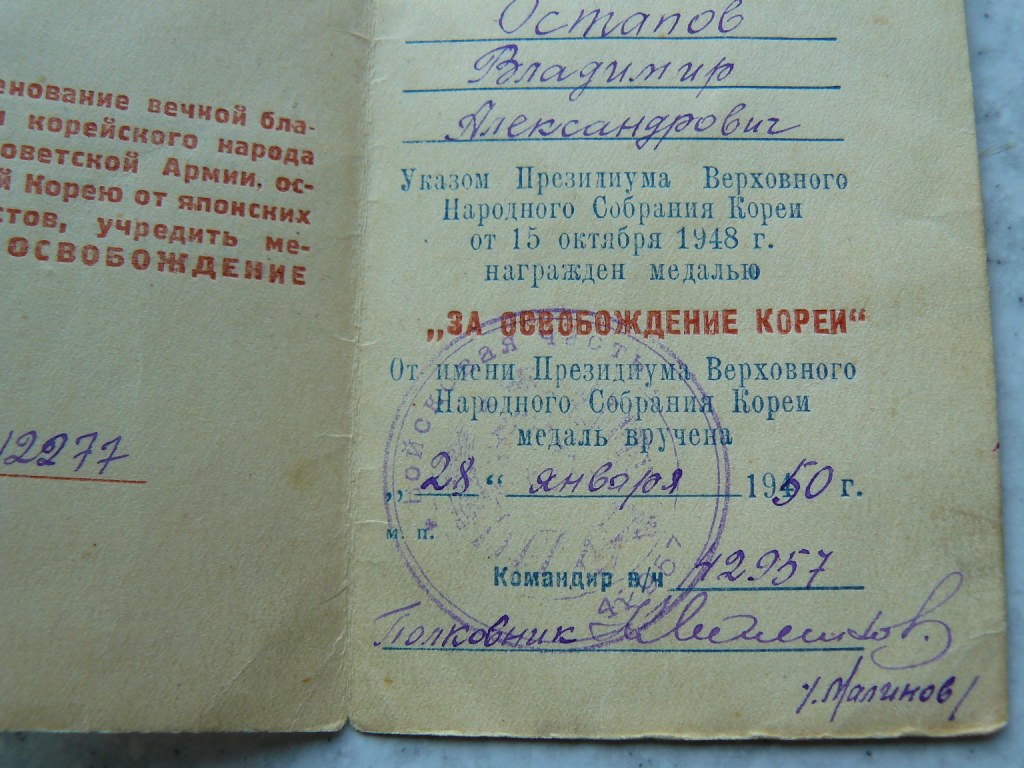 енование вечной бла-
и корейского народа
оветской Армии, ос-
й Корею от японских
стов, учредить ме-
ОСВОБОЖДЕНИЕ
12277
Остапов
Владимир
Александрович
Указом Президиума Верховного
Народного Собрания Кореи
от 15 октября 1948 г.
награжден медалью
„ЗА ОСВОБОЖДЕНИЕ КОРЕИ“
От имени Президиума Верховного
Народного Собрания Кореи
медаль вручена
„28“ января 1950 г.
м. п.
Командир в/ч 42957
Полковник
/Малинов/
Войсковая часть
42957